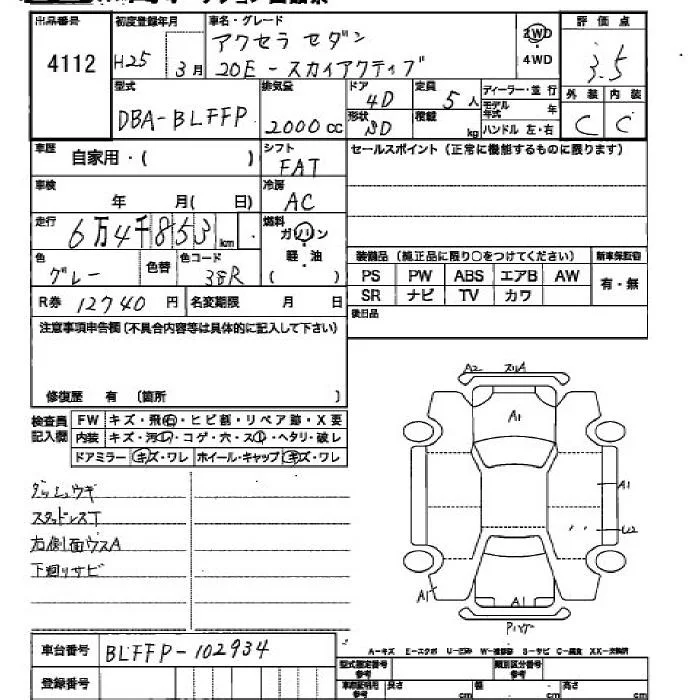 出品番号
4112
初度登録年月
H25 3月
車名・グレード
アクセラ セダン
20E-スカイアクティブ
2WD
4WD
評価点
3.5
外装 内装
C C
型式
DBA-BLFFP
排気量
2000cc
ドア
4D
形状
SD
定員
5人
積載
kg
ディーラー・並行
モデル年式 年
ハンドル 左・右
車歴
自家用・( )
シフト
FAT
車検
年 月( 日)
冷房
AC
走行
6万4千853km
燃料
ガソリン
軽・油
( )
色
グレー
色替
色コード
38R
R券 12740円
名変期限 月 日
セールスポイント(正常に機能するものに限ります)
装備品(純正品に限り○をつけてください)
新車保証書
PS PW ABS エアB AW
SR ナビ TV カワ
有・無
後日品
注意事項申告欄(不具合内容等は具体的に記入して下さい)
修復歴 有 〔箇所 〕
検査員記入欄
FW キズ・飛石・ヒビ割・リペア跡・X要
内装 キズ・汚レ・コゲ・穴・スレ・ヘタリ・破レ
ドアミラー キズ・ワレ ホイール・キャップ キズ・ワレ
ダッシュウキ
スタッドレスT
右側面ウスA
下廻りサビ
A2 スリA
A1
A1
U2
A1
A1
車台番号 BLFFP-102934
登録番号
A-キズ E-エクボ U-凹み W-補修跡 S-サビ C-腐食 XX-交換済
型式指定番号参考
類別区分番号参考
長さ cm 幅 cm 高さ cm